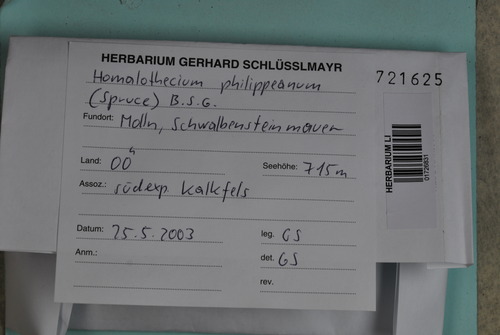 HERBARIUM GERHARD SCHLÜSSLMAYR
721625
Homalothecium philippeanum
(Spruce) B.S.G.
Fundort: Molln, Schwalbensteinmauer
Land: OÖ Seehöhe: 715m
Assoz.: südexp. Kalkfels
Datum: 25.5.2003 leg. GS
Anm.: det. GS
rev.
HERBARIUM LI
01729831